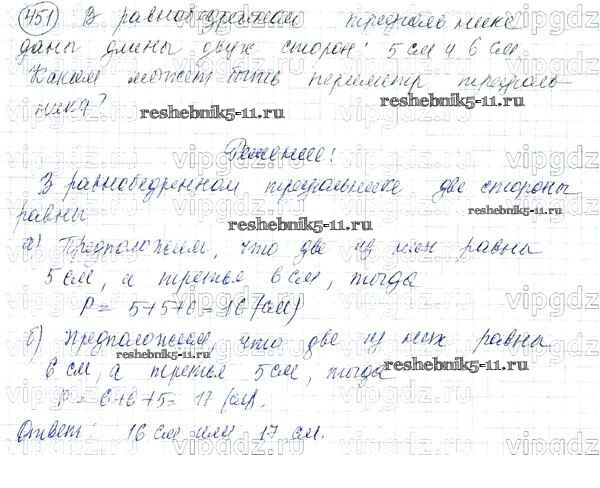 451) В равнобедренном треугольнике
даны длины двух сторон: 5 см и 6 см.
Каким может быть периметр треуголь-
ника?
Решение:
В равнобедренном треугольнике две стороны
равны
а) Предположим, что две из них равны
5 см, а третья 6 см, тогда
P = 5+5+6 = 16 (см)
б) Предположим, что две из них равны
6 см, а третья 5 см, тогда
P = 6+6+5 = 17 (см).
Ответ: 16 см или 17 см.
reshebnik5-11.ru
reshebnik5-11.ru
reshebnik5-11.ru
reshebnik5-11.ru
reshebnik5-11.ru
vipgdz